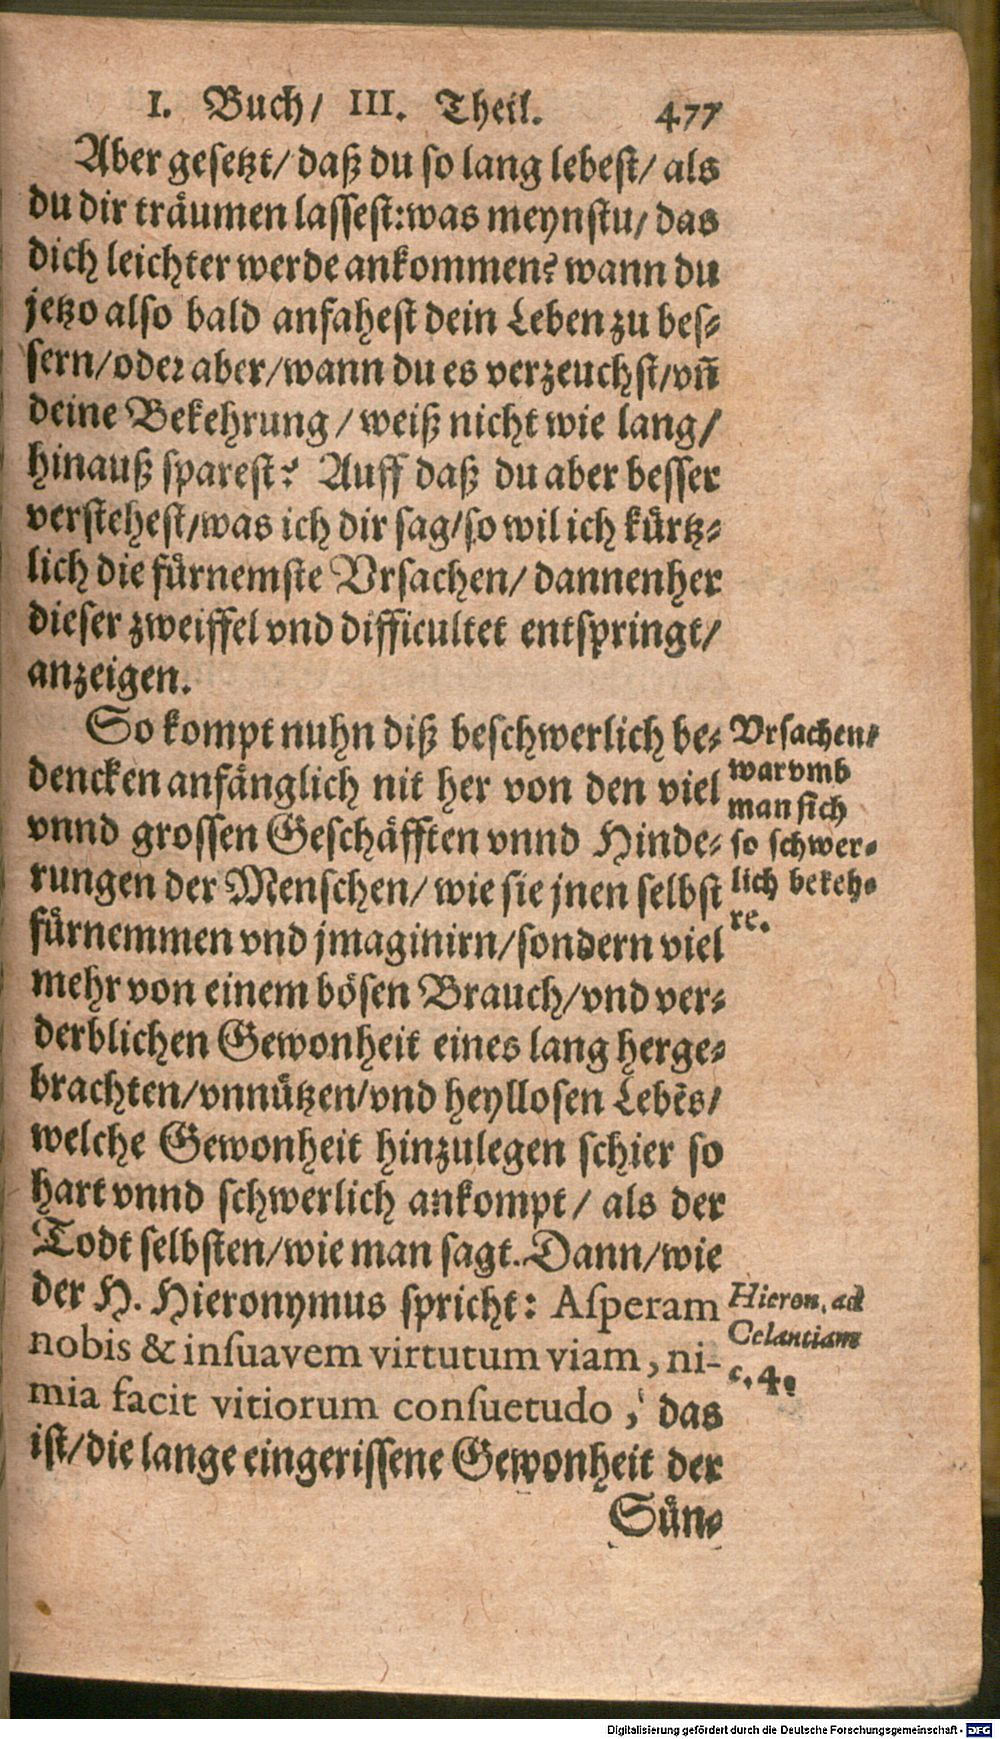 I. Buch/ III. Theil. 477
Aber gesetzt/ daß du so lang lebest/ als
du dir träumen lassest: was meynstu/ das
dich leichter werde ankommen? wann du
jetzo also bald anfahest dein Leben zu bes-
sern/ oder aber/ wann du es verzeuchst/ vñ
deine Bekehrung / weiß nicht wie lang/
hinauß sparest? Auff daß du aber besser
verstehest/ was ich dir sag/ so wil ich kürtz-
lich die fürnemste Vrsachen/ dannenher
dieser zweiffel vnd difficultet entspringt/
anzeigen.
So kompt nuhn diß beschwerlich be-
dencken anfänglich nit her von den viel
vnnd grossen Geschäfften vnnd Hinde-
rungen der Menschen/ wie sie jnen selbst
fürnemmen vnd jmaginirn/ sondern viel
mehr von einem bösen Brauch/ vnd ver-
derblichen Gewonheit eines lang herge-
brachten/ vnnützen/ vnd heyllosen Lebẽs/
welche Gewonheit hinzulegen schier so
hart vnnd schwerlich ankompt/ als der
Todt selbsten/ wie man sagt. Dann/ wie
der H. Hieronymus spricht: Asperam
nobis & insuavem virtutum viam, ni-
mia facit vitiorum consuetudo, das
ist/ die lange eingerissene Gewonheit der
Sün-
Vrsachen/
warvmb
man sich
so schwer-
lich bekeh-
re.
Hieron. ad
Celantiam
c. 4.
Digitalisierung gefördert durch die Deutsche Forschungsgemeinschaft - DFG